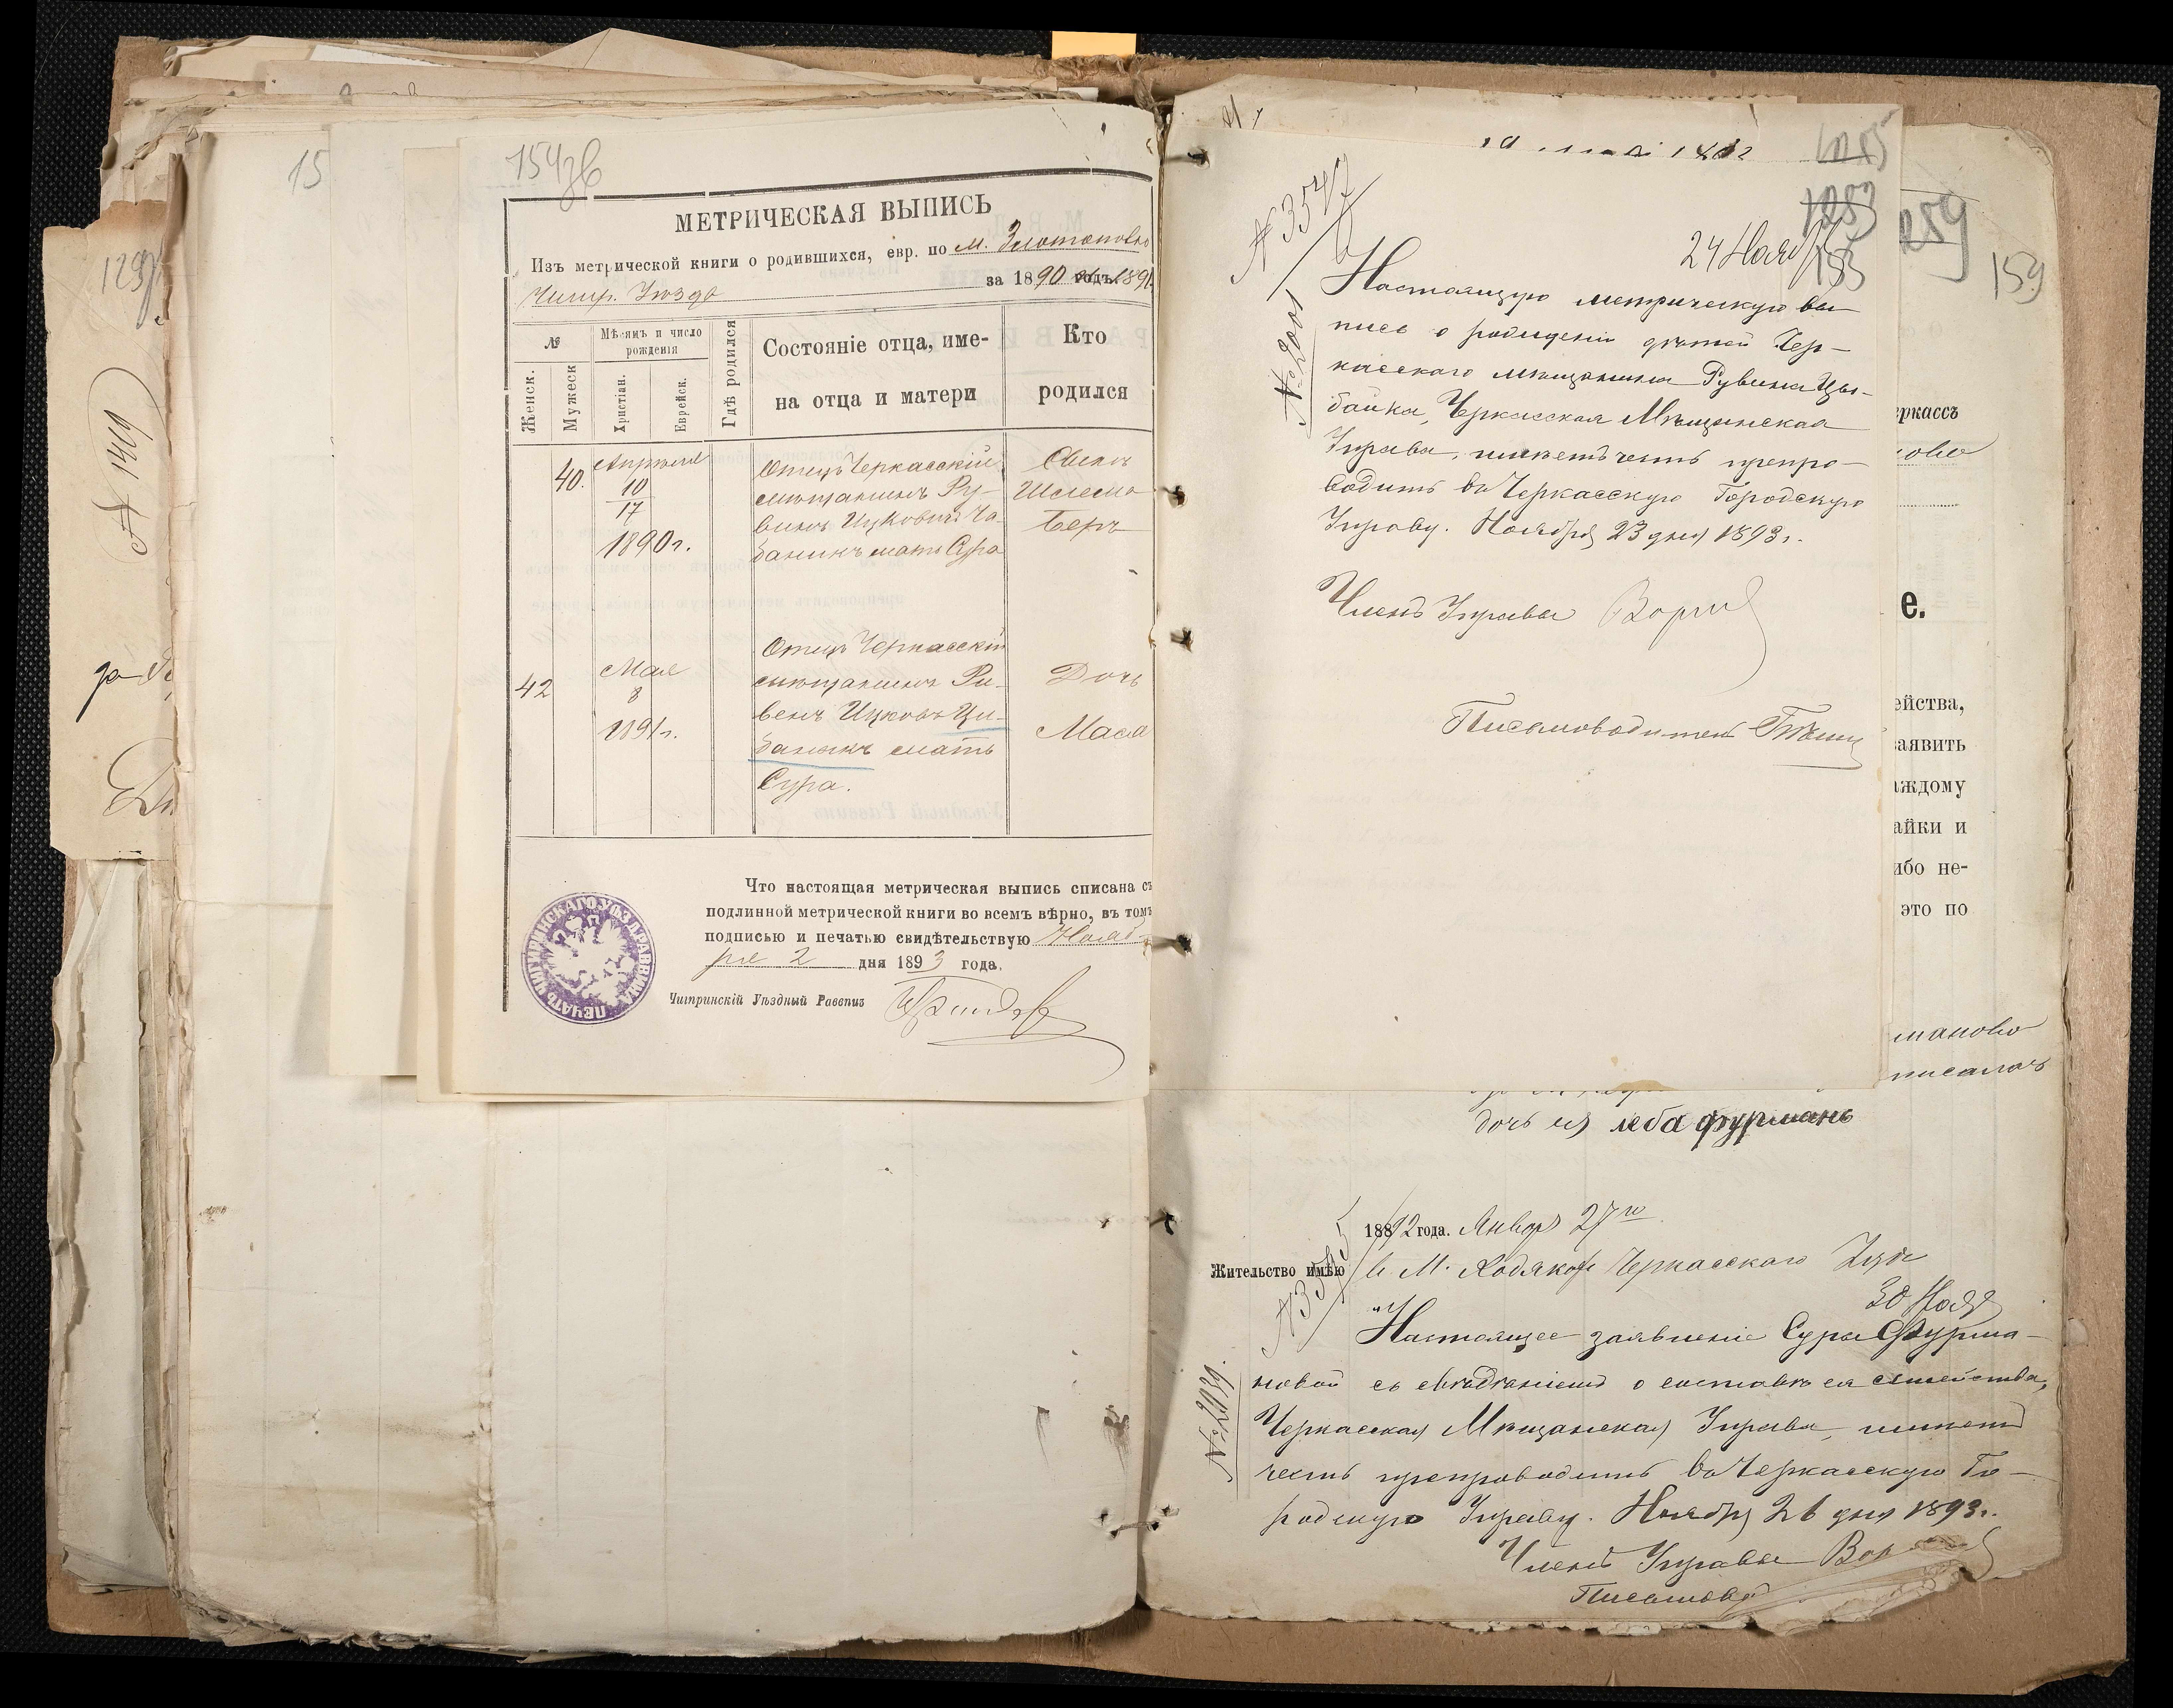 15
154зв
МЕТРИЧЕСКАЯ ВЫПИСЬ
Изъ метрической книги о родившихся, евр. по м. Златополю
Чигир. Уѣзда за 1890 годъ 1891
№
Мѣсяцъ и число рожденія
Женск.
Мужеск
Христіан.
Еврейск.
Гдѣ родился
Состояніе отца, име-
на отца и матери
Кто
родился
40.
Апрѣля
10
17
1890 г.
Отецъ Черкасскій
мѣщанинъ Ру-
винъ Ицковъ Ча-
баникъ мать Сура
Сынъ
Шлема
Беръ
42
Мая
8
1891 г.
Отецъ Черкасскій
мѣщанинъ Ри-
венъ Ицковъ Ци-
баникъ мать
Сура.
Дочь
Маса
Что настоящая метрическая выпись списана съ
подлинной метрической книги во всемъ вѣрно, въ томъ
подписью и печатью свидѣтельствую Нояб-
ря 2 дня 1893 года.
Чигиринскій Уѣздный Раввинъ
ПЕЧАТЬ ЧИГИРИНСКАГО УѢЗД. РАВВИНА
129
№ 1419
№ 3547
№ 2001
24 Нояб
Настоящую метрическую вы-
пись о рожденіи дѣтей Чер-
касскаго мѣщанина Рувина Цы-
баника, Черкасская Мѣщанская
Управа, имѣетъ честь препро-
водить въ Черкасскую Городскую
Управу. Ноября 23 дня 1893 г.
Членъ Управы
Письмоводитель
259
159
еркассъ
ово
е.
ейства,
заявить
аждому
айки и
ибо не-
это по
маново
писалъ
дочь ея леба фурманъ
1892 года. Января 27го
Жительство имѣю в М.
Черкасскаго
30 Нояб
Настоящее заявленіе Суры Фурма-
новой съ свѣдѣніемъ о составѣ ея семейства,
Черкасская Мѣщанская Управа, имѣетъ
честь препроводить въ Черкасскую Го-
родскую Управу. Ноября 26 дня 1893 г.
№ 2039.
Членъ Управы
Письмовод